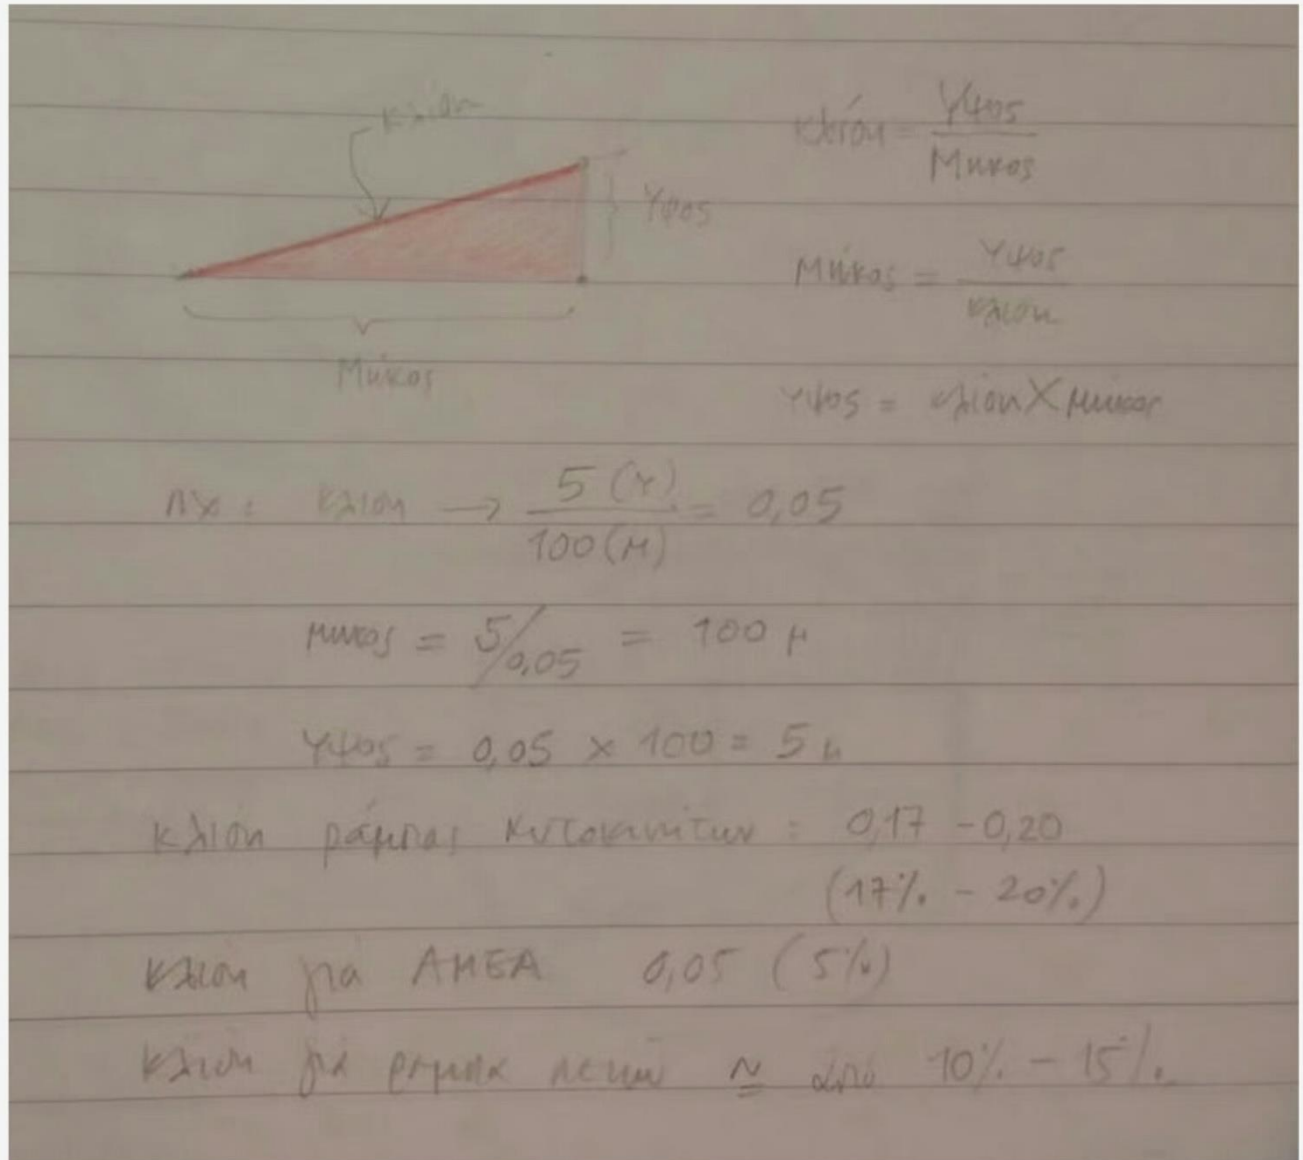 κλιση
Κλίση = Υψος / Μηκος
Υψος
Μήκος = Υψος / κλιση
Μήκος
Υψος = κλιση X μηκος
πχ: κλιση → 5 (Υ) / 100 (Μ) = 0,05
μηκος = 5/0,05 = 100 μ
Υψος = 0,05 x 100 = 5 μ
κλίση ράμπας αυτοκινήτων : 0,17 - 0,20
(17% - 20%)
κλιση για ΑΜΕΑ 0,05 (5%)
κλιση για ραμπα πεζων ≃ από 10% - 15%.